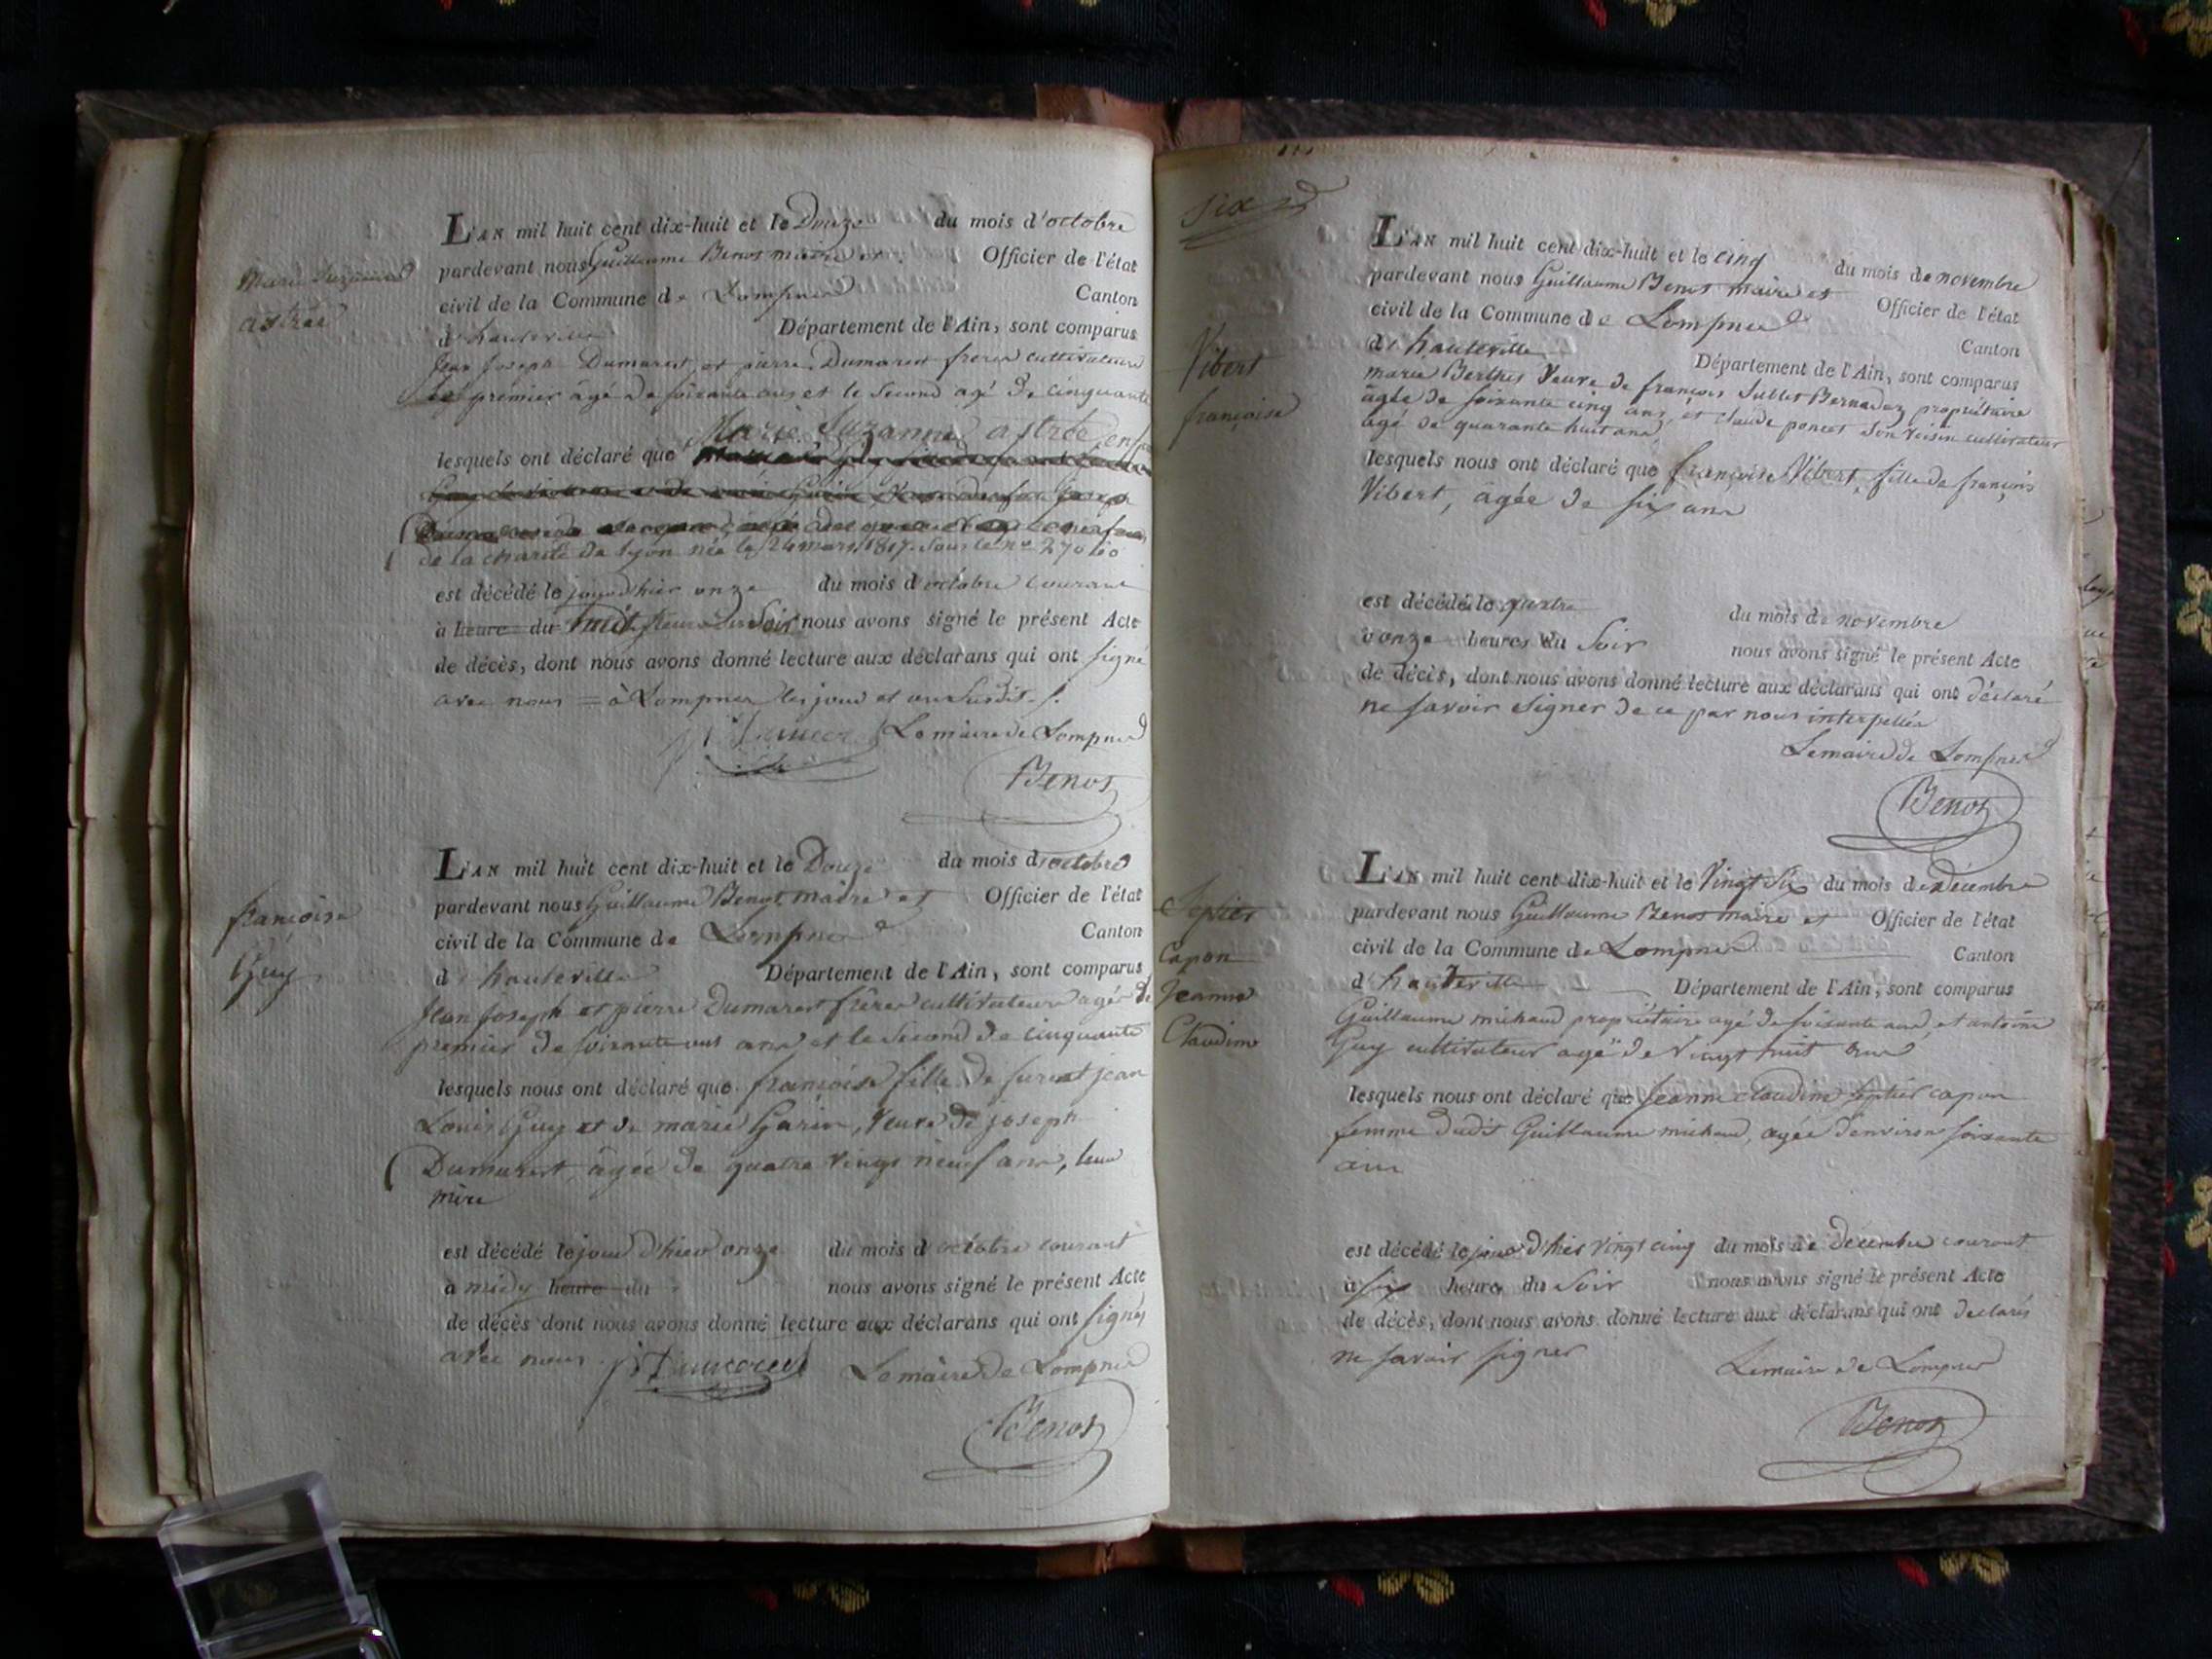 Marie Suzanne
astrée
L'AN mil huit cent dix-huit et le Douze du mois d'octobre
pardevant nous Guillaume Benos maire et Officier de l'état
civil de la Commune de Lompnes Canton
d'hauteville Département de l'Ain, sont comparus
Jean Joseph Dumarest et pierre Dumarest frères cultivateurs
le premier âgé de soixante ans et le second agé de cinquante
Marie Suzanne astrée, enf
lesquels ont déclaré que
de la charité de lyon née le 24 mars 1817. sous le no
est décédé le jour d'hier onze du mois d'octobre courant
à heure du huit heures du Soir nous avons signé le présent Acte
de décès, dont nous avons donné lecture aux déclarans qui ont signé
avec nous = à Lompnes les jour et an susdit.
Le maire de Lompnes
Benos
françoise
Guy
L'AN mil huit cent dix-huit et le Douze du mois d'octobre
pardevant nous Guillaume Benos maire et Officier de l'état
civil de la Commune de Lompnes Canton
d'hauteville Département de l'Ain, sont comparus
Jean Joseph et pierre Dumarest frères cultivateurs agés le
premier de soixante ans et le second de cinquante
lesquels nous ont déclaré que françoise fille de jean
Louis Guy et de marie Garin, veuve de joseph
Dumarest, âgée de quatre vingt neuf ans, leur
mère
est décédé le jour d'hier onze du mois d'octobre courant
à midy heure du nous avons signé le présent Acte
de décès dont nous avons donné lecture aux déclarans qui ont signés
avec nous. Le maire de Lompnes
Benos
Six
Vibert
françoise
L'AN mil huit cent dix-huit et le cinq du mois de novembre
pardevant nous Guillaume Benos maire et Officier de l'état
civil de la Commune de Lompnes Canton
d'hauteville Département de l'Ain, sont comparus
marie Berthet Veuve de françois Sublet Bernadaz propriétaire
âgée de soixante cinq ans, et Claude poncet son voisin cultivateur
agé de quarante huit ans,
lesquels nous ont déclaré que françoise Vibert, fille de françois
Vibert, âgée de six ans
est décédé le quatre du mois de novembre
à onze heures du Soir nous avons signé le présent Acte
de décès, dont nous avons donné lecture aux déclarans qui ont déclaré
ne savoir signer de ce par nous interpellés
Le maire de Lompnes
Benos
Septier
Capon
Jeanne
Claudine
L'AN mil huit cent dix-huit et le Vingt Six du mois de Décembre
pardevant nous Guillaume Benos maire et Officier de l'état
civil de la Commune de Lompnes Canton
d'hauteville Département de l'Ain, sont comparus
Guillaume michaud propriétaire agé de soixante ans, et antoine
Guy cultivateur agé de Vingt huit ans
lesquels nous ont déclaré que Jeanne claudine Septier capon
femme dudit Guillaume michaud, agée d'environ soixante
ans
est décédé le jour d'hier vingt cinq du mois de décembre courant
à six heures du Soir nous avons signé le présent Acte
de décès, dont nous avons donné lecture aux déclarans qui ont déclarés
ne savoir signer Le maire de Lompnes
Benos